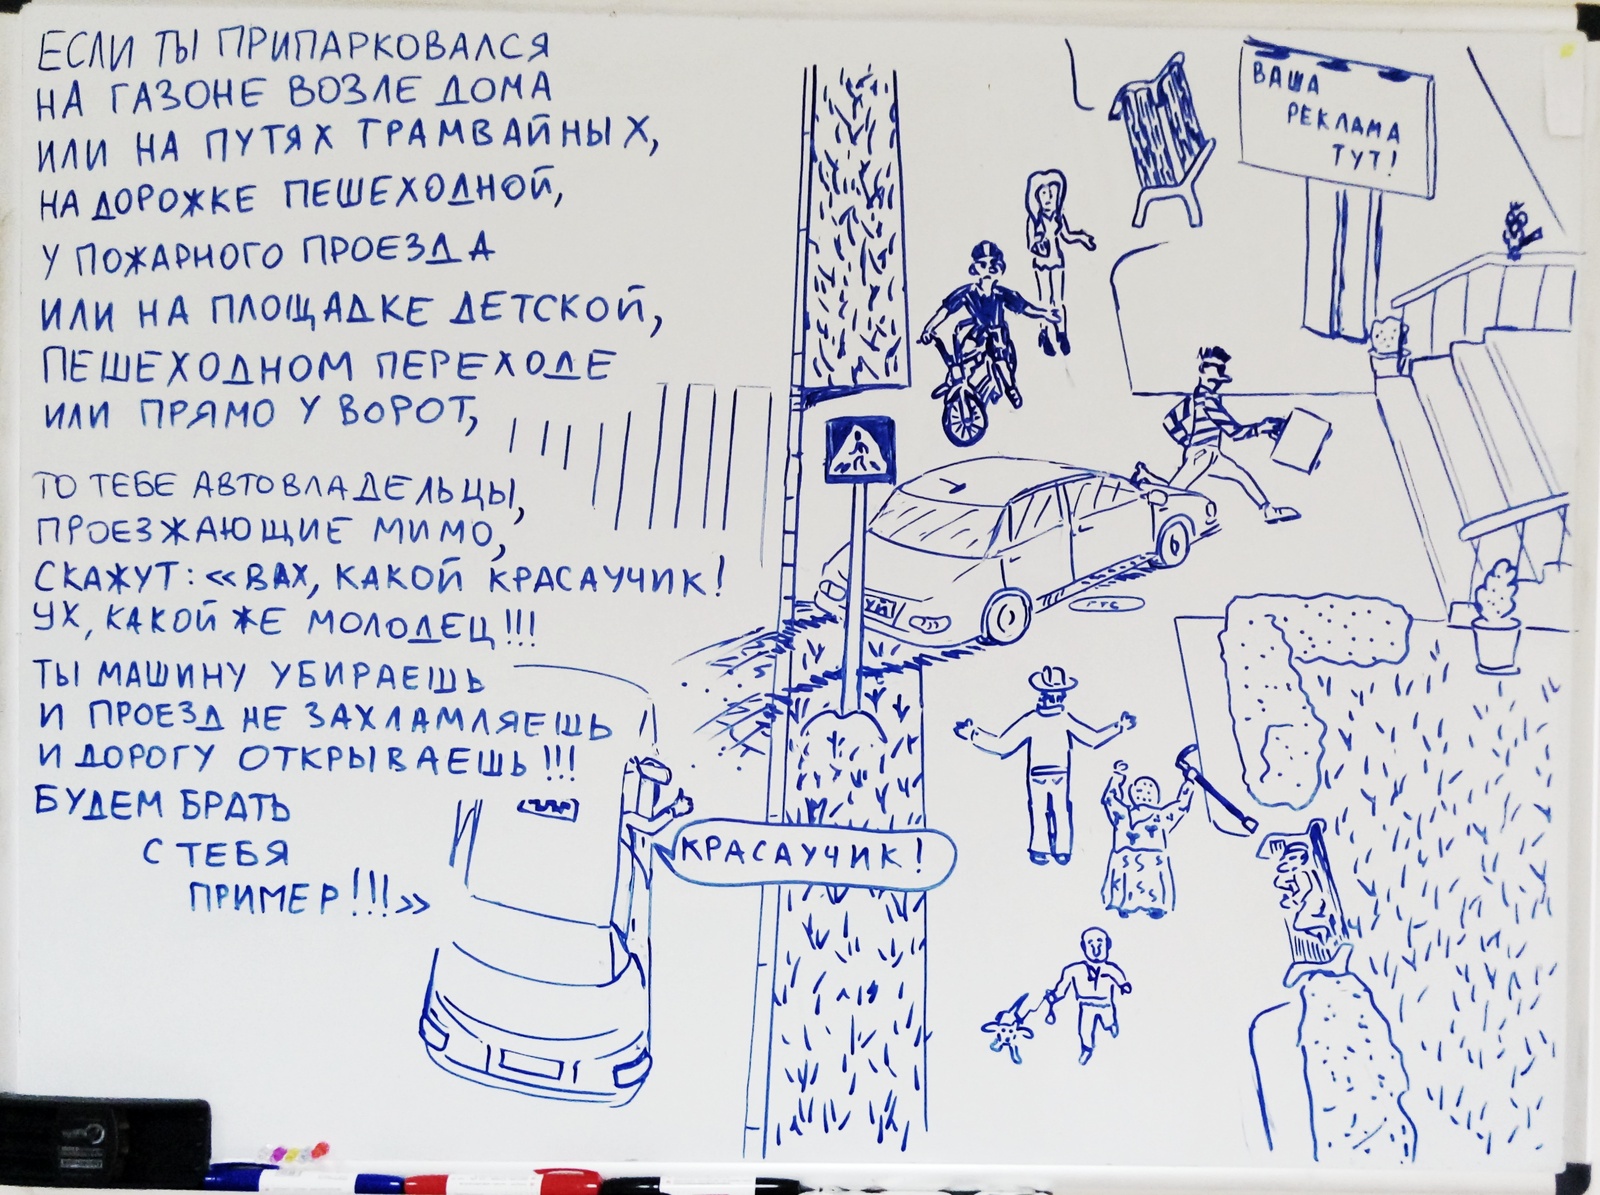 ЕСЛИ ТЫ ПРИПАРКОВАЛСЯ
НА ГАЗОНЕ ВОЗЛЕ ДОМА
ИЛИ НА ПУТЯХ ТРАМВАЙНЫХ,
НА ДОРОЖКЕ ПЕШЕХОДНОЙ,
У ПОЖАРНОГО ПРОЕЗДА
ИЛИ НА ПЛОЩАДКЕ ДЕТСКОЙ,
ПЕШЕХОДНОМ ПЕРЕХОДЕ
ИЛИ ПРЯМО У ВОРОТ,
ТО ТЕБЕ АВТОВЛАДЕЛЬЦЫ,
ПРОЕЗЖАЮЩИЕ МИМО,
СКАЖУТ: «ВАХ, КАКОЙ КРАСАУЧИК!
УХ, КАКОЙ ЖЕ МОЛОДЕЦ!!!
ТЫ МАШИНУ УБИРАЕШЬ
И ПРОЕЗД НЕ ЗАХЛАМЛЯЕШЬ
И ДОРОГУ ОТКРЫВАЕШЬ!!!
БУДЕМ БРАТЬ
С ТЕБЯ
ПРИМЕР!!!»
ВАША
РЕКЛАМА
ТУТ!
КРАСАУЧИК!